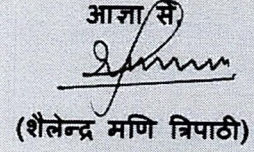 आज्ञा से,
(शैलेन्द्र मणि त्रिपाठी)